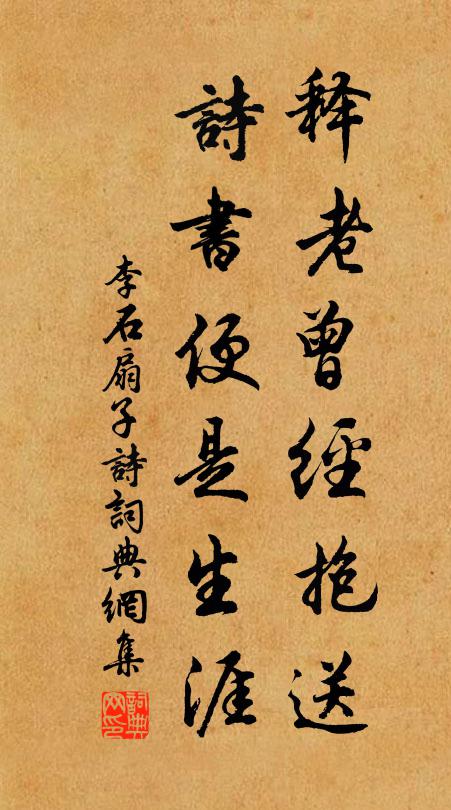 释老曾經抱送
詩書便是生涯
李石扇子詩詞典網集
詞典
网印